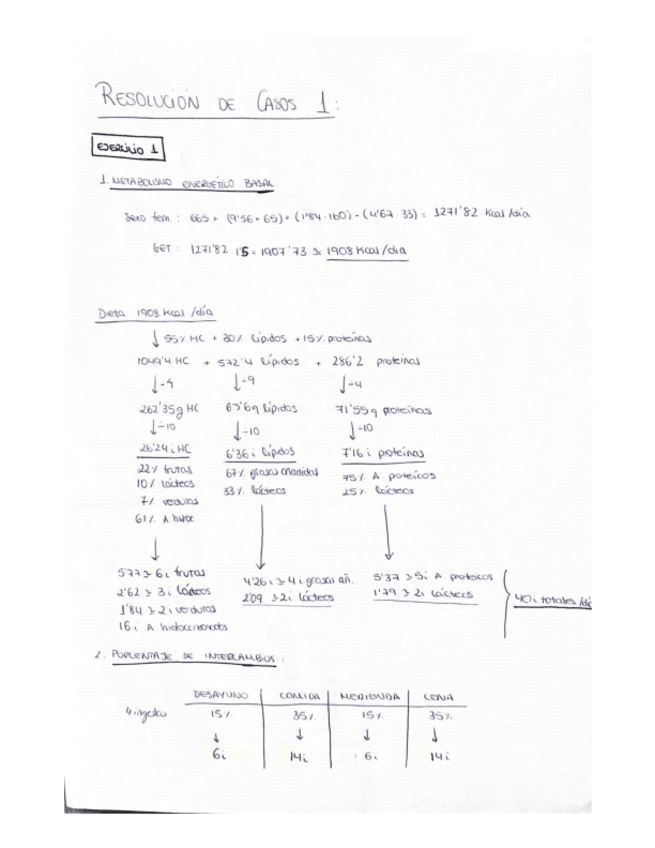 RESOLUCIÓN DE CASOS 1:
EJERCICIO 1
1. METABOLISMO ENERGÉTICO BASAL.
Sexo fem: 665 + (9'56 + 65) + (1'84 · 160) - (4'67 · 33) = 1271'82 Kcal/día
GET: 1271'82 1'5 = 1907'73 ≃ 1908 Kcal/día
Dieta 1908 Kcal/día
↓ 55% HC + 30% lípidos + 15% proteínas
1049'4 HC + 572'4 lípidos + 286'2 proteínas
↓÷4 ↓÷9 ↓÷4
262'35g HC 63'6g lípidos 71'55g proteínas
↓÷10 ↓÷10 ↓÷10
26'24 i HC 6'36 i lípidos 7'16 i proteínas
22% frutas 67% grasas añadidas 75% A. proteicos
10% lácteos 33% lácteos 25% lácteos
7% verduras
61% A hidroc
5'77 ≃ 6 i frutas 4'26 i ≃ 4 i grasas añ. 5'37 ≃ 5 i A. proteicos
2'62 ≃ 3 i lácteos 2'09 ≃ 2 i lácteos 1'79 ≃ 2 i lácteos 40 i totales/dí
1'84 ≃ 2 i verduras
16 i A hidrocarbonados
2. PORCENTAJE DE INTERCAMBIOS:
DESAYUNO COMIDA MERIENDA CENA
4 ingestas 15% 35% 15% 35%
↓ ↓ ↓ ↓
6 i 14 i 6 i 14 i